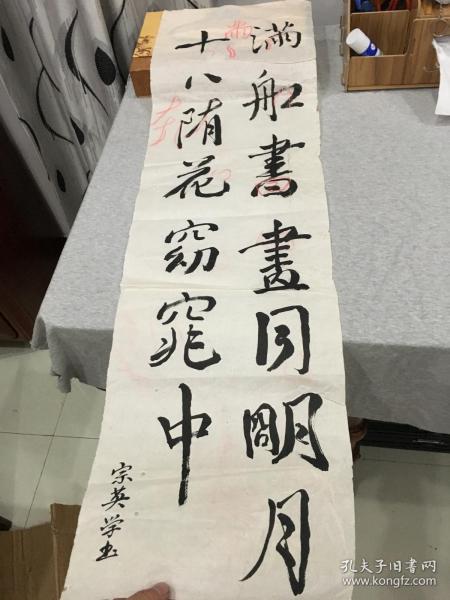 滿舡書畫同明月
十八隋花窈窕中
宗英学书
孔夫子旧书网
www.kongfz.com